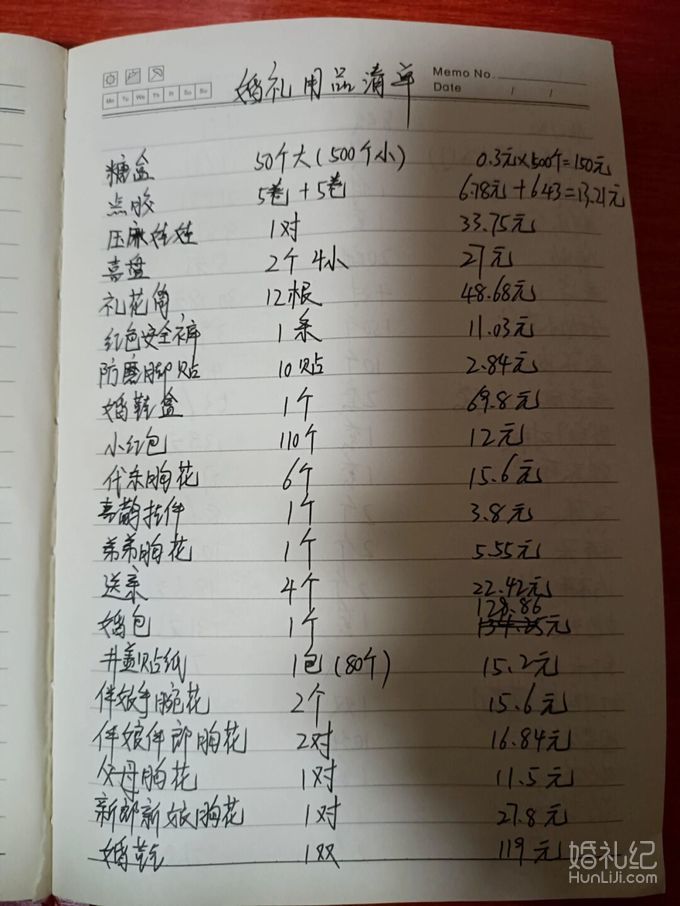 Memo No.
Mo Tu We Th Fr Sa Su
Date / /
婚礼用品清单
糖盒 50个大(500个小) 0.3元×500个=150元
点胶 5卷+5卷 6.78元+6.43=13.21元
压床娃娃 1对 33.75元
喜盘 2个4小 27元
礼花筒 12根 48.68元
红色安全裤 1条 11.03元
防磨脚贴 10贴 2.84元
婚鞋盒 1个 69.8元
小红包 110个 12元
代东胸花 6个 15.6元
喜鹊挂件 1个 3.8元
弟弟胸花 1个 5.55元
送亲 4个 22.42元
婚包 1个 128.86 134.25元
井盖贴纸 1包(80个) 15.2元
伴娘手腕花 2个 15.6元
伴娘伴郎胸花 2对 16.84元
父母胸花 1对 11.5元
新郎新娘胸花 1对 27.8元
婚鞋 1双 119元
婚礼纪
HunLiJi.com